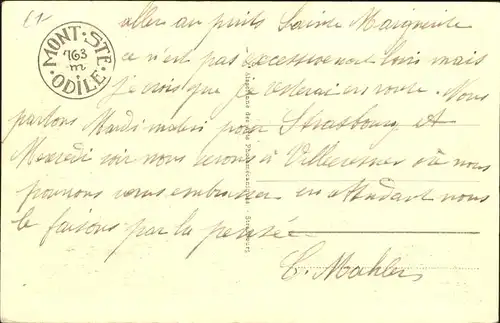 MONT·STE·ODILE·
763
m
aller au puits Sainte Marguerite
ce n'est pas excessivement loin mais
je crois que je resterai en route. Nous
partons Mardi matin pour Strasbourg et
Mercredi soir nous serons à où nous
pourrons vous embrasser en attendant nous
le faisons par la pensée
C. Mahler